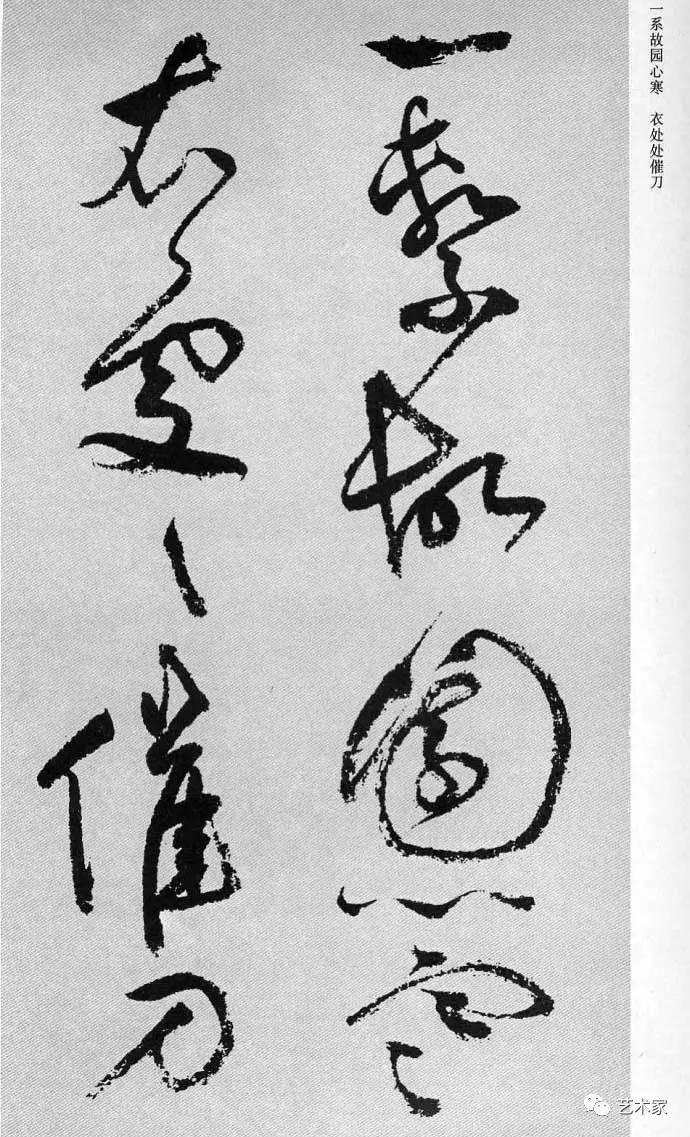 一系故园心寒　衣处处催刀
一繫故園心寒
衣處〻催刀
艺术家